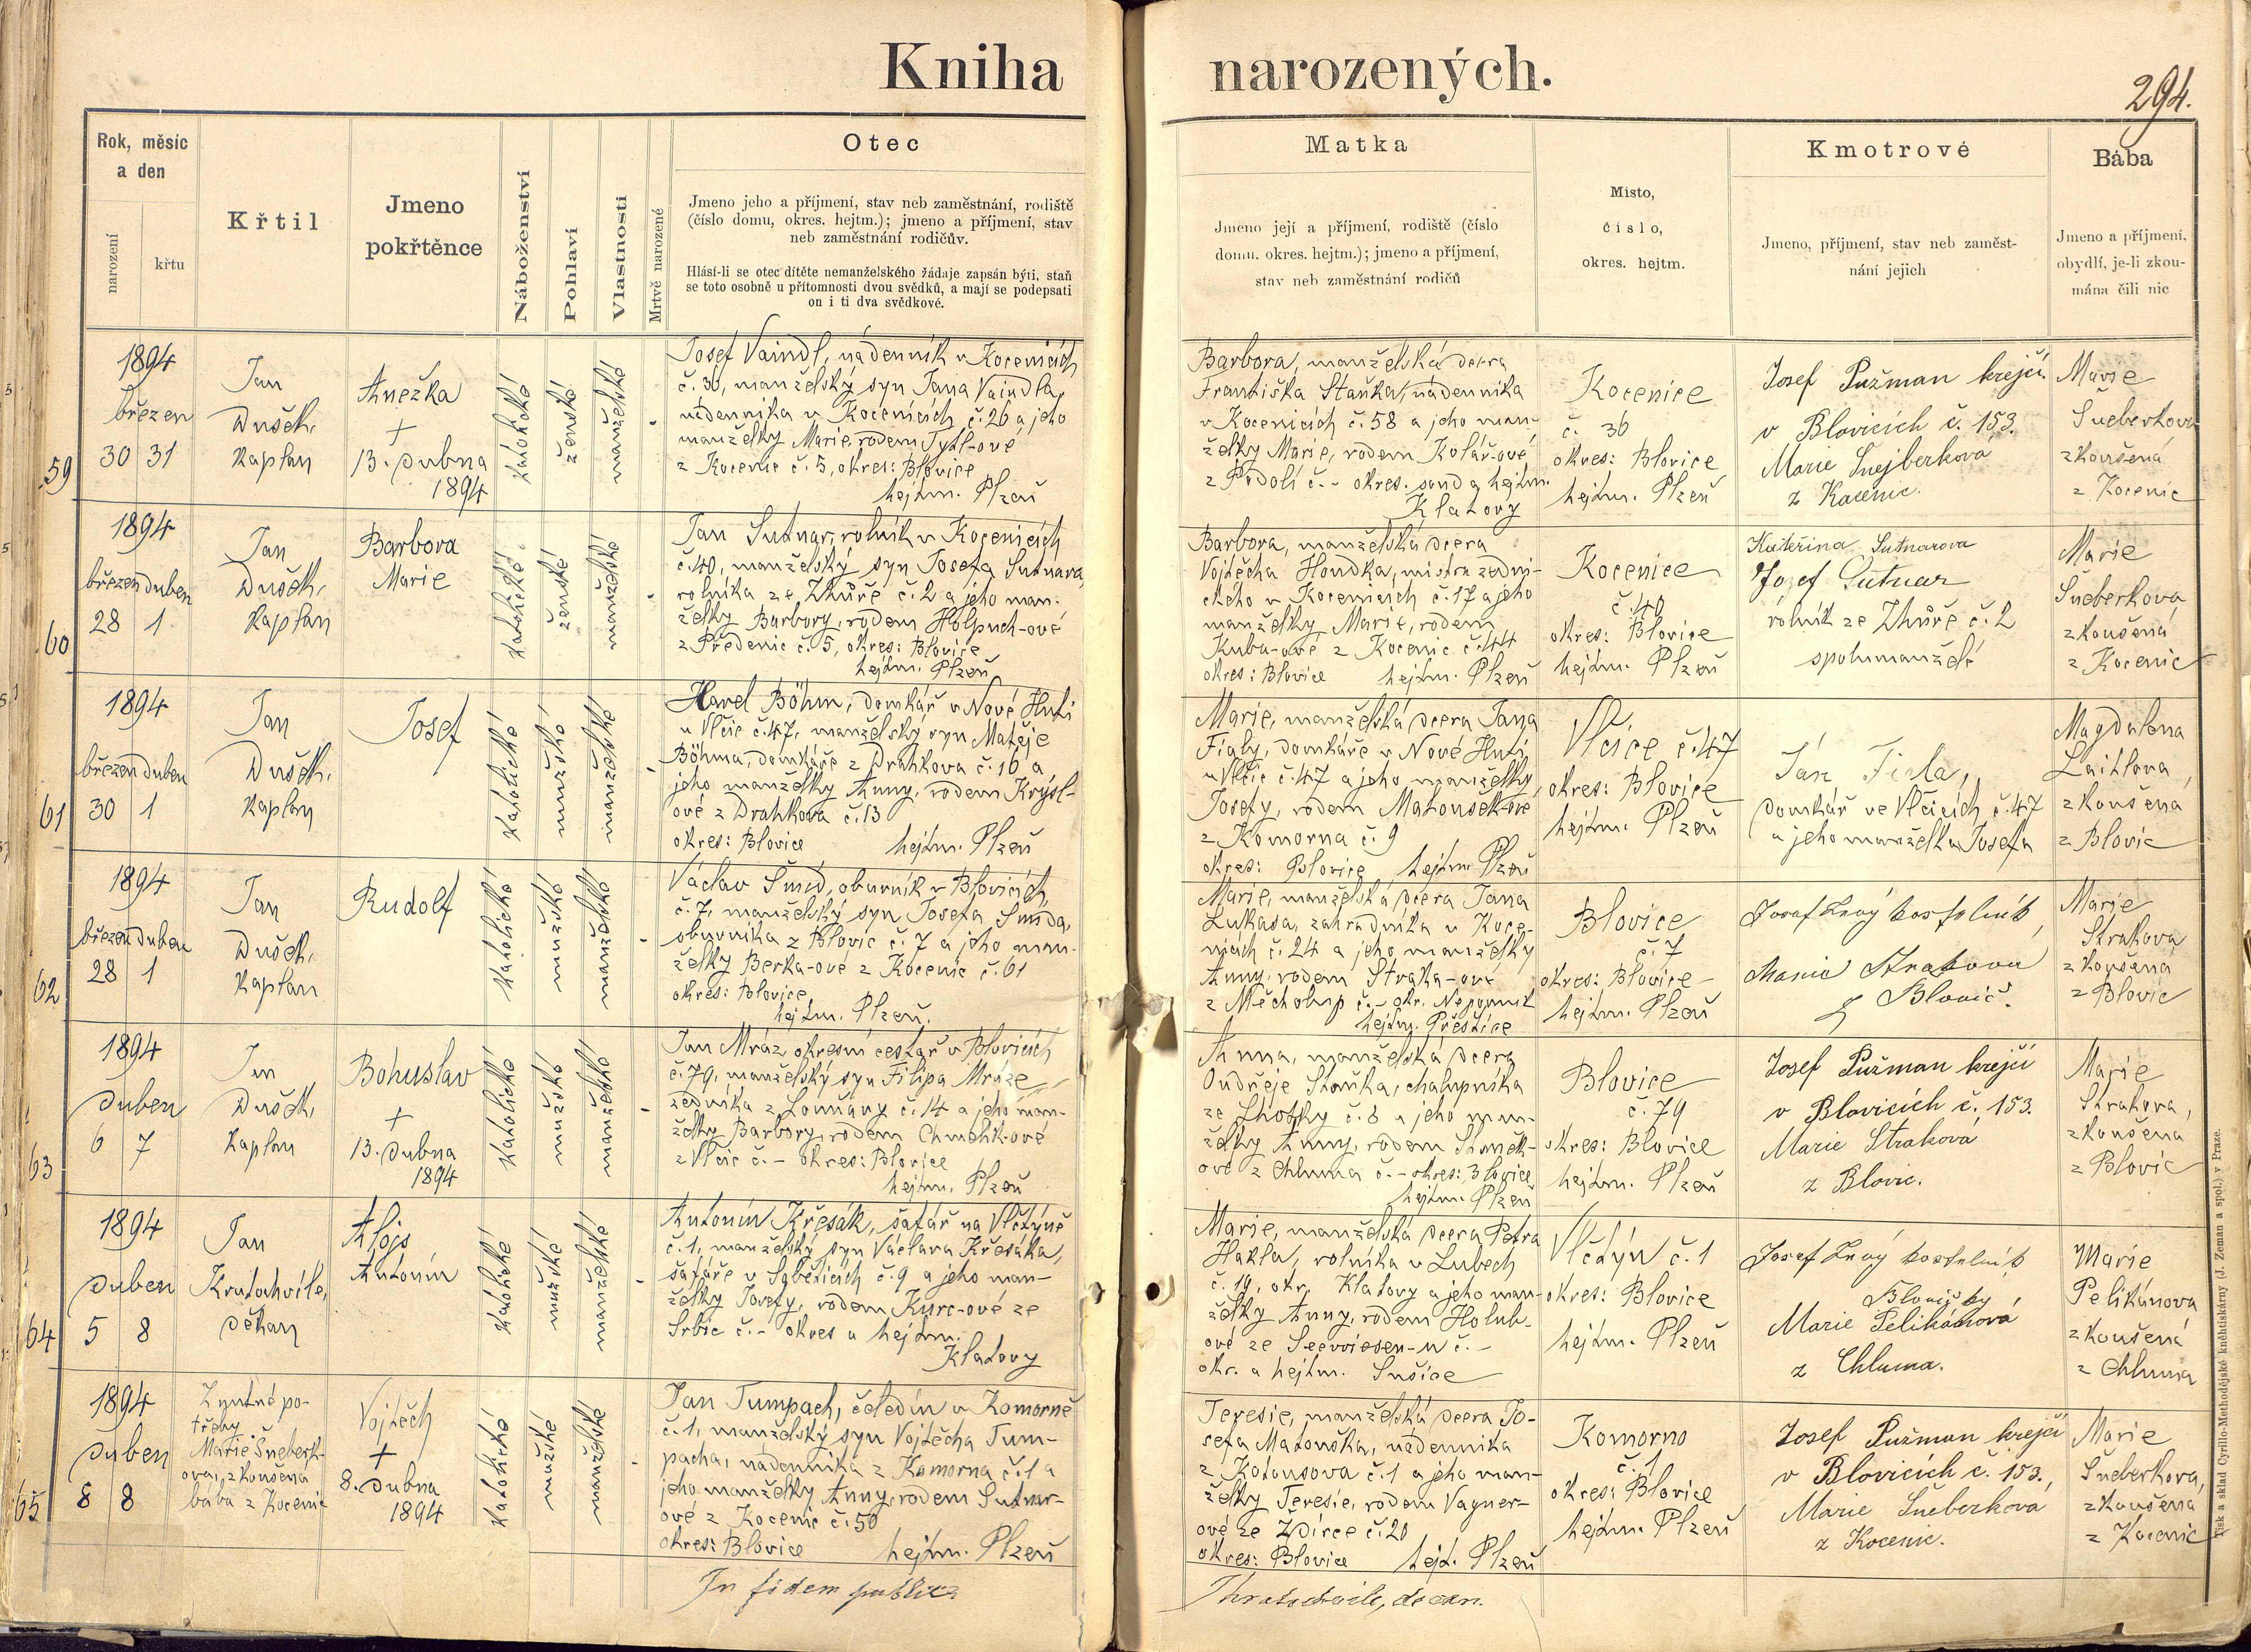 Kniha narozených.
294.
Rok, měsíc
a den
narození
křtu
Křtil
Jmeno
pokřtěnce
Náboženství
Pohlaví
Vlastnosti
Mrtvě narozené
Otec
Jmeno jeho a příjmení, stav neb zaměstnání, rodiště
(číslo domu, okres. hejtm.); jmeno a příjmení, stav
neb zaměstnání rodičův.
Hlásí-li se otec dítěte nemanželského žádaje zapsán býti, staň
se toto osobně u přítomnosti dvou svědků, a mají se podepsati
on i ti dva svědkové.
Matka
Jmeno její a příjmení, rodiště (číslo
domu. okres. hejtm.); jmeno a příjmení,
stav neb zaměstnání rodičů
Misto,
číslo,
okres. hejtm.
Kmotrové
Jmeno, příjmení, stav neb zaměst-
nání jejich
Bába
Jmeno a příjmení,
obydlí, je-li zkou-
mána čili nic
59
1894
březen
30 31
Jan
Dušek,
kaplan
Anežka
+
13. dubna
1894
katolické
ženské
manželské
-
Josef Vaindl, nádenník v Kocenicích
č. 30, manželský syn Jana Vaindla,
nádenníka v Kocenicích č. 26 a jeho
manželky Marie, rodem Tytl-ové
z Kocenic č. 5, okres: Blovice
hejtm. Plzeň
Barbora, manželská dcera
Františka Staňka, nádenníka
v Kocenicích č. 58 a jeho man-
želky Marie, rodem Kolář-ové
z Podolí č. - okres. soud a hejtm.
Klatovy
Kocenice
č. 30
okres: Blovice
hejtm. Plzeň
Josef Pužman krejčí
v Blovicích č. 153.
Marie Šnejberková
z Kocenic.
Marie
Šneberkova
zkoušená
z Kocenic
60
1894
březen duben
28 1
Jan
Dušek,
kaplan
Barbora
Marie
katolické
ženské
manželské
-
Jan Sutnar, rolník v Kocenicích
č. 40, manželský syn Josefa Sutnara,
rolníka ze Zhůře č. 2 a jeho man-
želky Barbory, rodem Holpuch-ové
z Předenic č. 5, okres: Blovice
hejtm. Plzeň
Barbora, manželská dcera
Vojtěcha Houdka, mistra zedni-
ckého v Kocenicích č. 17 a jeho
manželky Marie, rodem
Kuba-ové z Kocenic č. 44
okres: Blovice hejtm. Plzeň
Kocenice
č. 40
okres: Blovice
hejtm. Plzeň
Kateřina Sutnarova
Josef Sutnar
rolník ze Zhůře č. 2
spolumanželé
Marie
Šneberkova
zkoušená
z Kocenic
61
1894
březen duben
30 1
Jan
Dušek,
kaplan
Josef
katolické
mužské
manželské
-
Havel Böhm, domkář v Nové Huti
u Vlčic č. 47, manželský syn Matěje
Böhma, domkáře z Drahkova č. 16 a
jeho manželky Anny, rodem Krýsl-
ové z Drahkova č. 13
okres: Blovice hejtm. Plzeň
Marie, manželská dcera Jana
Fialy, domkáře v Nové Huti
u Vlčic č. 47 a jeho manželky
Josefy, rodem Matousek-ové
z Komorna č. 9
okres: Blovice hejtm. Plzeň
Vlčice č. 47
okres: Blovice
hejtm. Plzeň
Ján Fiala,
domkář ve Vlčicích č. 47
a jeho manželka Josefa
Magdalena
Laitlova,
zkoušená
z Blovic
62
1894
březen duben
28 1
Jan
Dušek,
kaplan
Rudolf
katolické
mužské
manželské
-
Václav Šmíd, obuvník v Blovicích,
č. 7, manželský syn Josefa Šmída,
obuvníka z Blovic č. 7 a jeho man-
želky Berka-ové z Kocenic č. 61
okres: Blovice,
hejtm. Plzeň.
Marie, manželská dcera Jana
Lukasa, zahradníka v Koce-
nicích č. 24 a jeho manželky
Anny, rodem Straka-ové
z Měcholup č. - okr. Nepomuk
hejtm. Přeštice
Blovice
č. 7
okres: Blovice
hejtm. Plzeň
Josef Levý kostelník,
Marie Straková
z Blovic.
Marie
Strakova
zkoušená
z Blovic
63
1894
duben
6 7
Jan
Dušek,
kaplan
Bohuslav
+
13. dubna
1894
katolické
mužské
manželské
-
Jan Mráz, okresní cestář v Blovicích
č. 79, manželský syn Filipa Mráze,
zedníka z Louňavy č. 14 a jeho man-
želky Barbory, rodem Chmelik-ové
z Vlčic č. - okres: Blovice
hejtm. Plzeň
Anna, manželská dcera
Ondřeje Staňka, chalupníka
ze Lhotky č. 8 a jeho man-
želky Anny, rodem Staněk-
ové z Chluma č. - okres: Blovice
hejtm. Plzeň
Blovice
č. 79
okres: Blovice
hejtm. Plzeň
Josef Pužman krejčí
v Blovicích č. 153.
Marie Straková
z Blovic.
Marie
Strakova,
zkoušená
z Blovic
64
1894
duben
5 8
Jan
Kratochvile,
děkan
Alojs
Antonín
katolické
mužské
manželské
-
Antonín Křesák, šafář na Vlčtýně
č. 1, manželský syn Václava Křesáka,
šafáře v Soběticích č. 9 a jeho man-
želky Josefy, rodem Kurc-ové ze
Srbic č. - okres a hejtm.
Klatovy
Marie, manželská dcera Petra
Hakla, rolníka v Lubech
č. 19, okr. Klatovy a jeho man-
želky Anny, rodem Holub-
ové ze č. -
okr. a hejtm. Sušice
Vlčtýn č. 1
okres: Blovice
hejtm. Plzeň
Josef Levý kostelník
Marie Pelikánová
z Chluma.
Marie
Pelikánova
zkoušená
z Chluma
65
1894
duben
8 8
Z nutné po-
třeby
Marie Šneberk-
ova, zkoušená
bába z Kocenic
Vojtěch
+
8. dubna
1894
katolické
mužské
manželské
-
Jan Tumpach, čeledín v Komorně
č. 1, manželský syn Vojtěcha Tum-
pacha, nádenníka z Komorna č. 1 a
jeho manželky Anny, rodem Sutnar-
ové z Kocenic č. 50
okres: Blovice hejtm. Plzeň
Teresie, manželská dcera Jo-
sefa Matouška, nádenníka
z Kotousova č. 1 a jeho man-
želky Teresie, rodem Vagner-
ové ze Ždírce č. 20
okres: Blovice hejt. Plzeň
Komorno
č. 1
okres: Blovice
hejtm. Plzeň
Josef Pužman krejčí
v Blovicích č. 153.,
Marie Šneberková
z Kocenic.
Marie
Šneberkova,
zkoušená
z Kocenic
In fidem publica
Khratochvile, decan.
Tisk a sklad Cyrillo-Methodějské kněhtiskárny (J. Zeman a spol.) v Praze.